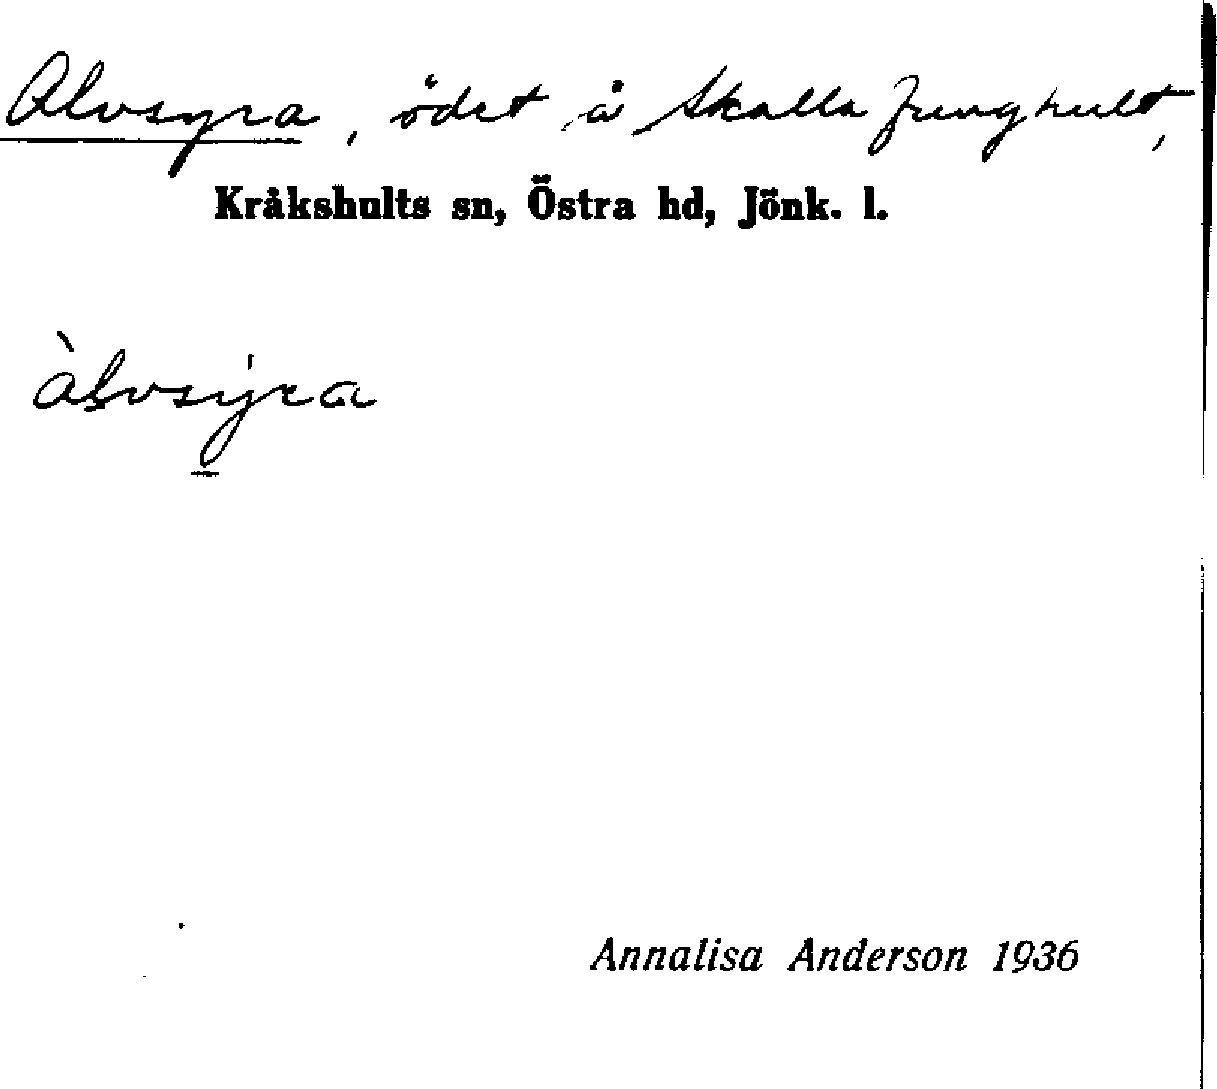 Alvsyra, ödet å Skalla Junghult,
Kråkshults sn, Östra hd, Jönk. l.
àlvsy̍ra
Annalisa Anderson 1936